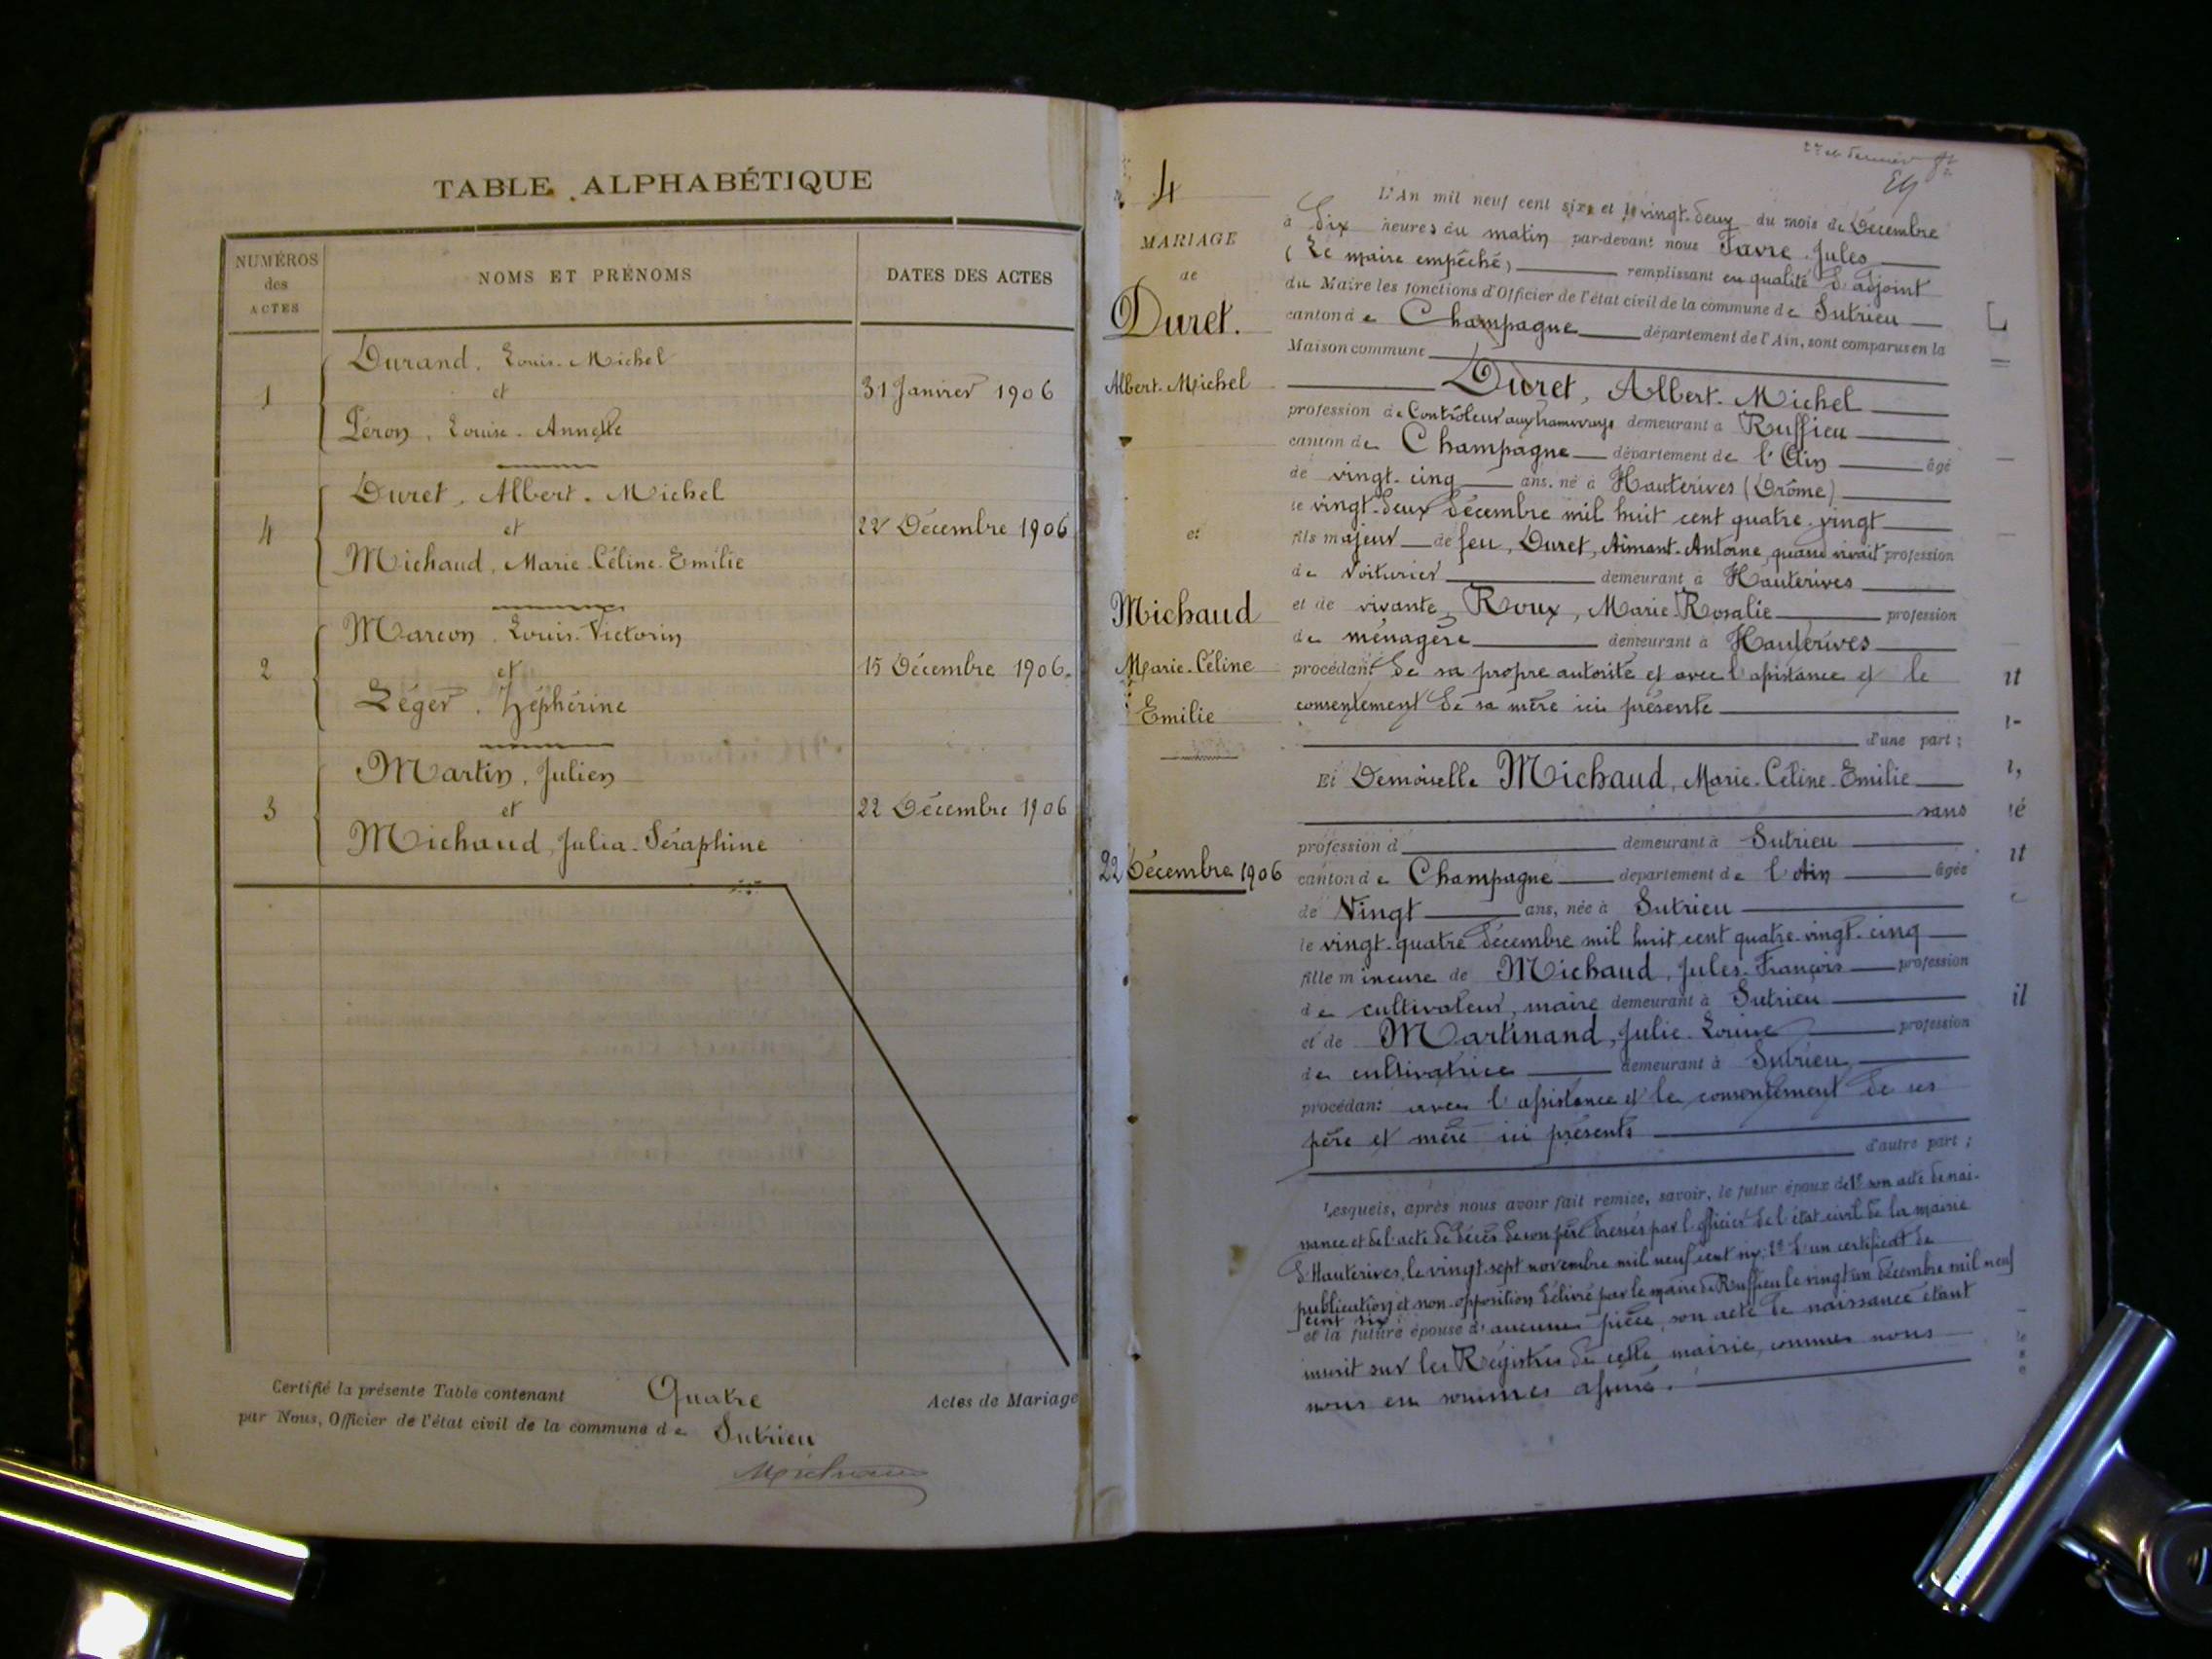 TABLE ALPHABÉTIQUE
NUMÉROS
des
ACTES
NOMS ET PRÉNOMS
DATES DES ACTES
Durand, Louis-Michel
1
et
31 Janvier 1906
Péron, Louise-Annette
Duret, Albert-Michel
4
et
22 Décembre 1906
Michaud, Marie-Céline-Emilie
Marcon, Louis-Victorin
2
et
15 Décembre 1906.
Léger, Zéphérine
Martin, Julien
3
et
22 Décembre 1906
Michaud, Julia-Séraphine
Certifié la présente Table contenant Quatre Actes de Mariage
par Nous, Officier de l'état civil de la commune de Sutrieu
Michaud
4
MARIAGE
de
Duret.
Albert-Michel
et
Michaud
Marie-Céline
Emilie
22 Décembre 1906
2e et dernier
L'An mil neuf cent six et le vingt-deux du mois de Décembre
à Dix heures du matin par-devant nous Favre Jules
(Le maire empêché) remplissant en qualité d'adjoint
du Maire les fonctions d'Officier de l'état civil de la commune de Sutrieu
canton de Champagne département de l'Ain, sont comparus en la
Maison commune
Duret, Albert-Michel
profession de Contrôleur aux tramways demeurant à Ruffieu
canton de Champagne département de l'Ain âgé
de vingt-cinq ans, né à Hauterives (Drôme)
le vingt-deux décembre mil huit cent quatre-vingt
fils majeur de feu, Duret, Aimant-Antoine, quand vivait profession
de voiturier demeurant à Hauterives
et de vivante, Roux, Marie Rosalie profession
de ménagère demeurant à Hauterives
procédant de sa propre autorité et avec l'assistance et le
consentement de sa mère ici présente
d'une part ;
Et Demoiselle Michaud, Marie-Céline-Emilie
sans
profession d demeurant à Sutrieu
canton de Champagne département de l'Ain âgée
de Vingt ans, née à Sutrieu
le vingt-quatre décembre mil huit cent quatre-vingt-cinq
fille mineure de Michaud, Jules-François profession
de cultivateur, maire demeurant à Sutrieu
et de Martinand, Julie-Louise profession
de cultivatrice demeurant à Sutrieu
procédant avec l'assistance et le consentement de ses
père et mère ici présents
d'autre part ;
Lesquels, après nous avoir fait remise, savoir, le futur époux de 1° son acte de nais-
sance et de l'acte de décès de son père dressés par l'officier de l'état civil de la mairie
d'Hauterives, le vingt-sept novembre mil neuf cent six, 2° d'un certificat de
publication et non-opposition délivré par le maire de Ruffieu le vingt un décembre mil neuf
cent six
et la future épouse d'aucune pièce, son acte de naissance étant
inscrit sur les Registres de cette mairie, comme nous
nous en sommes assuré.